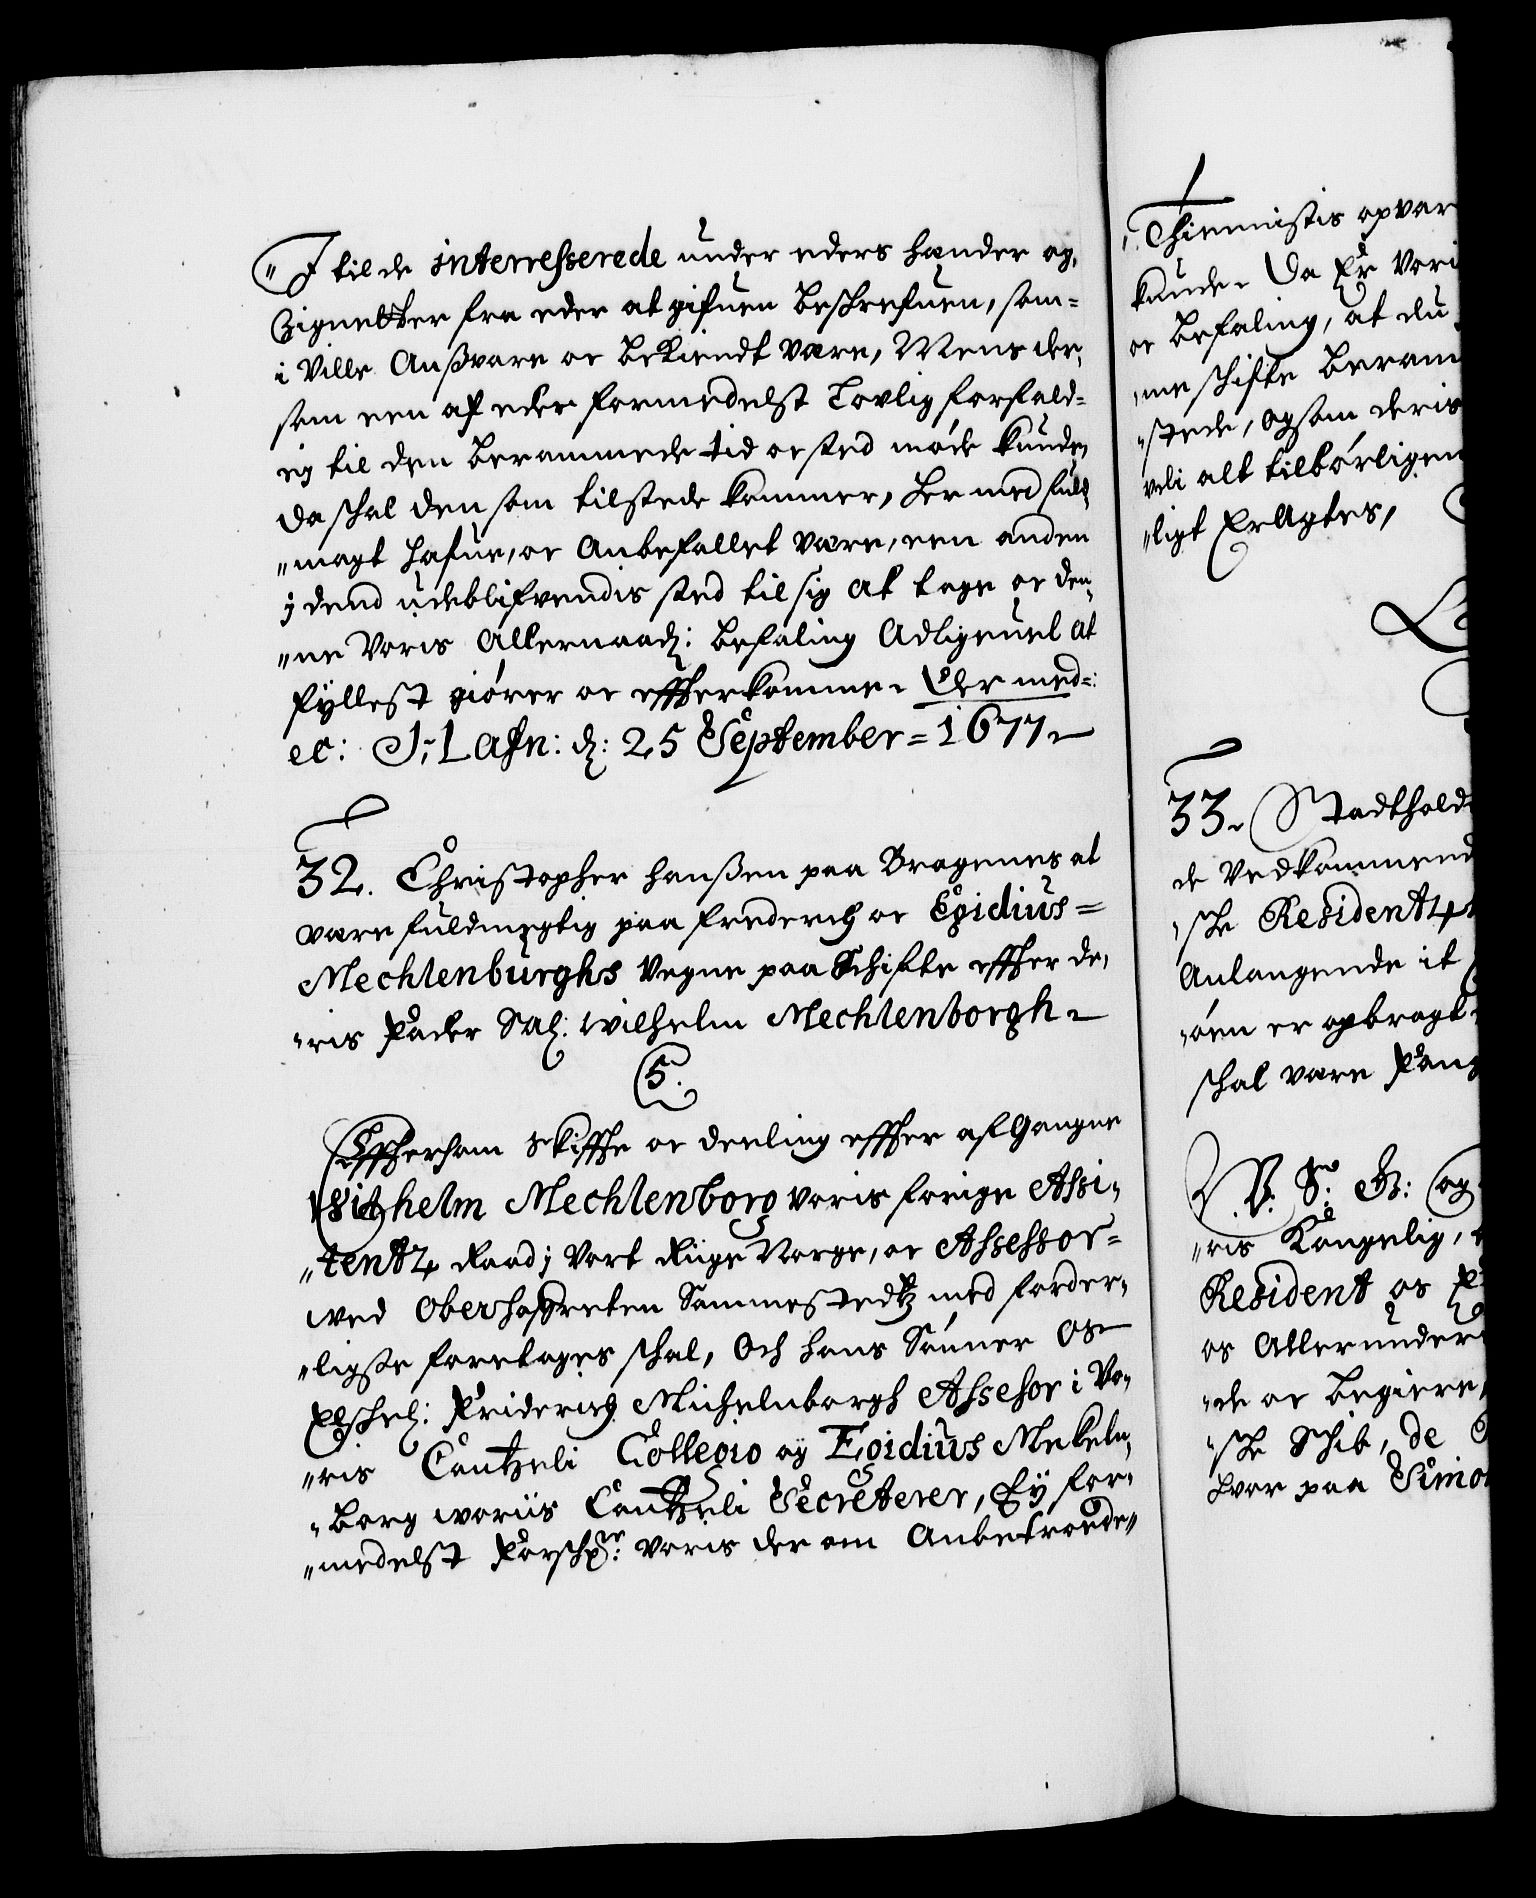 "I til de interresserede under eders hænder og,
Zignetter fra eder at gifuen beskrefuen, som=
i ville Ansvare oc bekiendt være, Mens der,
som een af eder formedelst Lovlig forfald=
ej til den berammede tid oc sted møde kunde,
da skal den som tilstede kommer, her med fuld
"magt hafue, oc Anbefallet være, een anden
j dend udeblifvendis sted til sig at tage oc den,
"ne Voris Allernaad: befaling Adligeuel at
fyllest giører oc effterkomme. Der med=:
ec: J: Lafn: d: 25 September = 1677.
32. Christopher Hanßen paa Bragenes at
være fuldmegtig paa Frederich oc Egidius=
Mechlenburghs vegne paa Schifte effter de,
"ris Fader Sal: Wilhelm Mechlenborgh.
5.
Effthersom skiffte oc deeling effter afgangne
Wilhelm Mechlenborg voris forige Assi,
"tentz Raad j vort Riige Norge, oc Assessor=
wed Oberhofretten Sammestedtz med forder,
"ligste foretages skal, Och hans Sønner Os
Elschel: Friderich Michelnborgh Assesor i Vo,
"ris Cantzeli Collegio og Egidius Mekeln,
"borg woriis Cantzeli Secreterer, Ey for,
"medelst Forsch: voris der om Anbetroede"
Thiennistis opvar
kunde. Da Er Vori
oc befaling, at du
"me skifte beram
"stede, og som deris
veli alt tilbørligen
"ligt Eragtes,
33. Stadthold
de Vedkommend
"ske Residentz
Anlangende it
"øen er opbragt
skal være Fang
V. S. G: og
"ris Kongelig,
Resident os
os Allerunder
"de oc begiere,
"ske Skib, de
hvor paa Simo